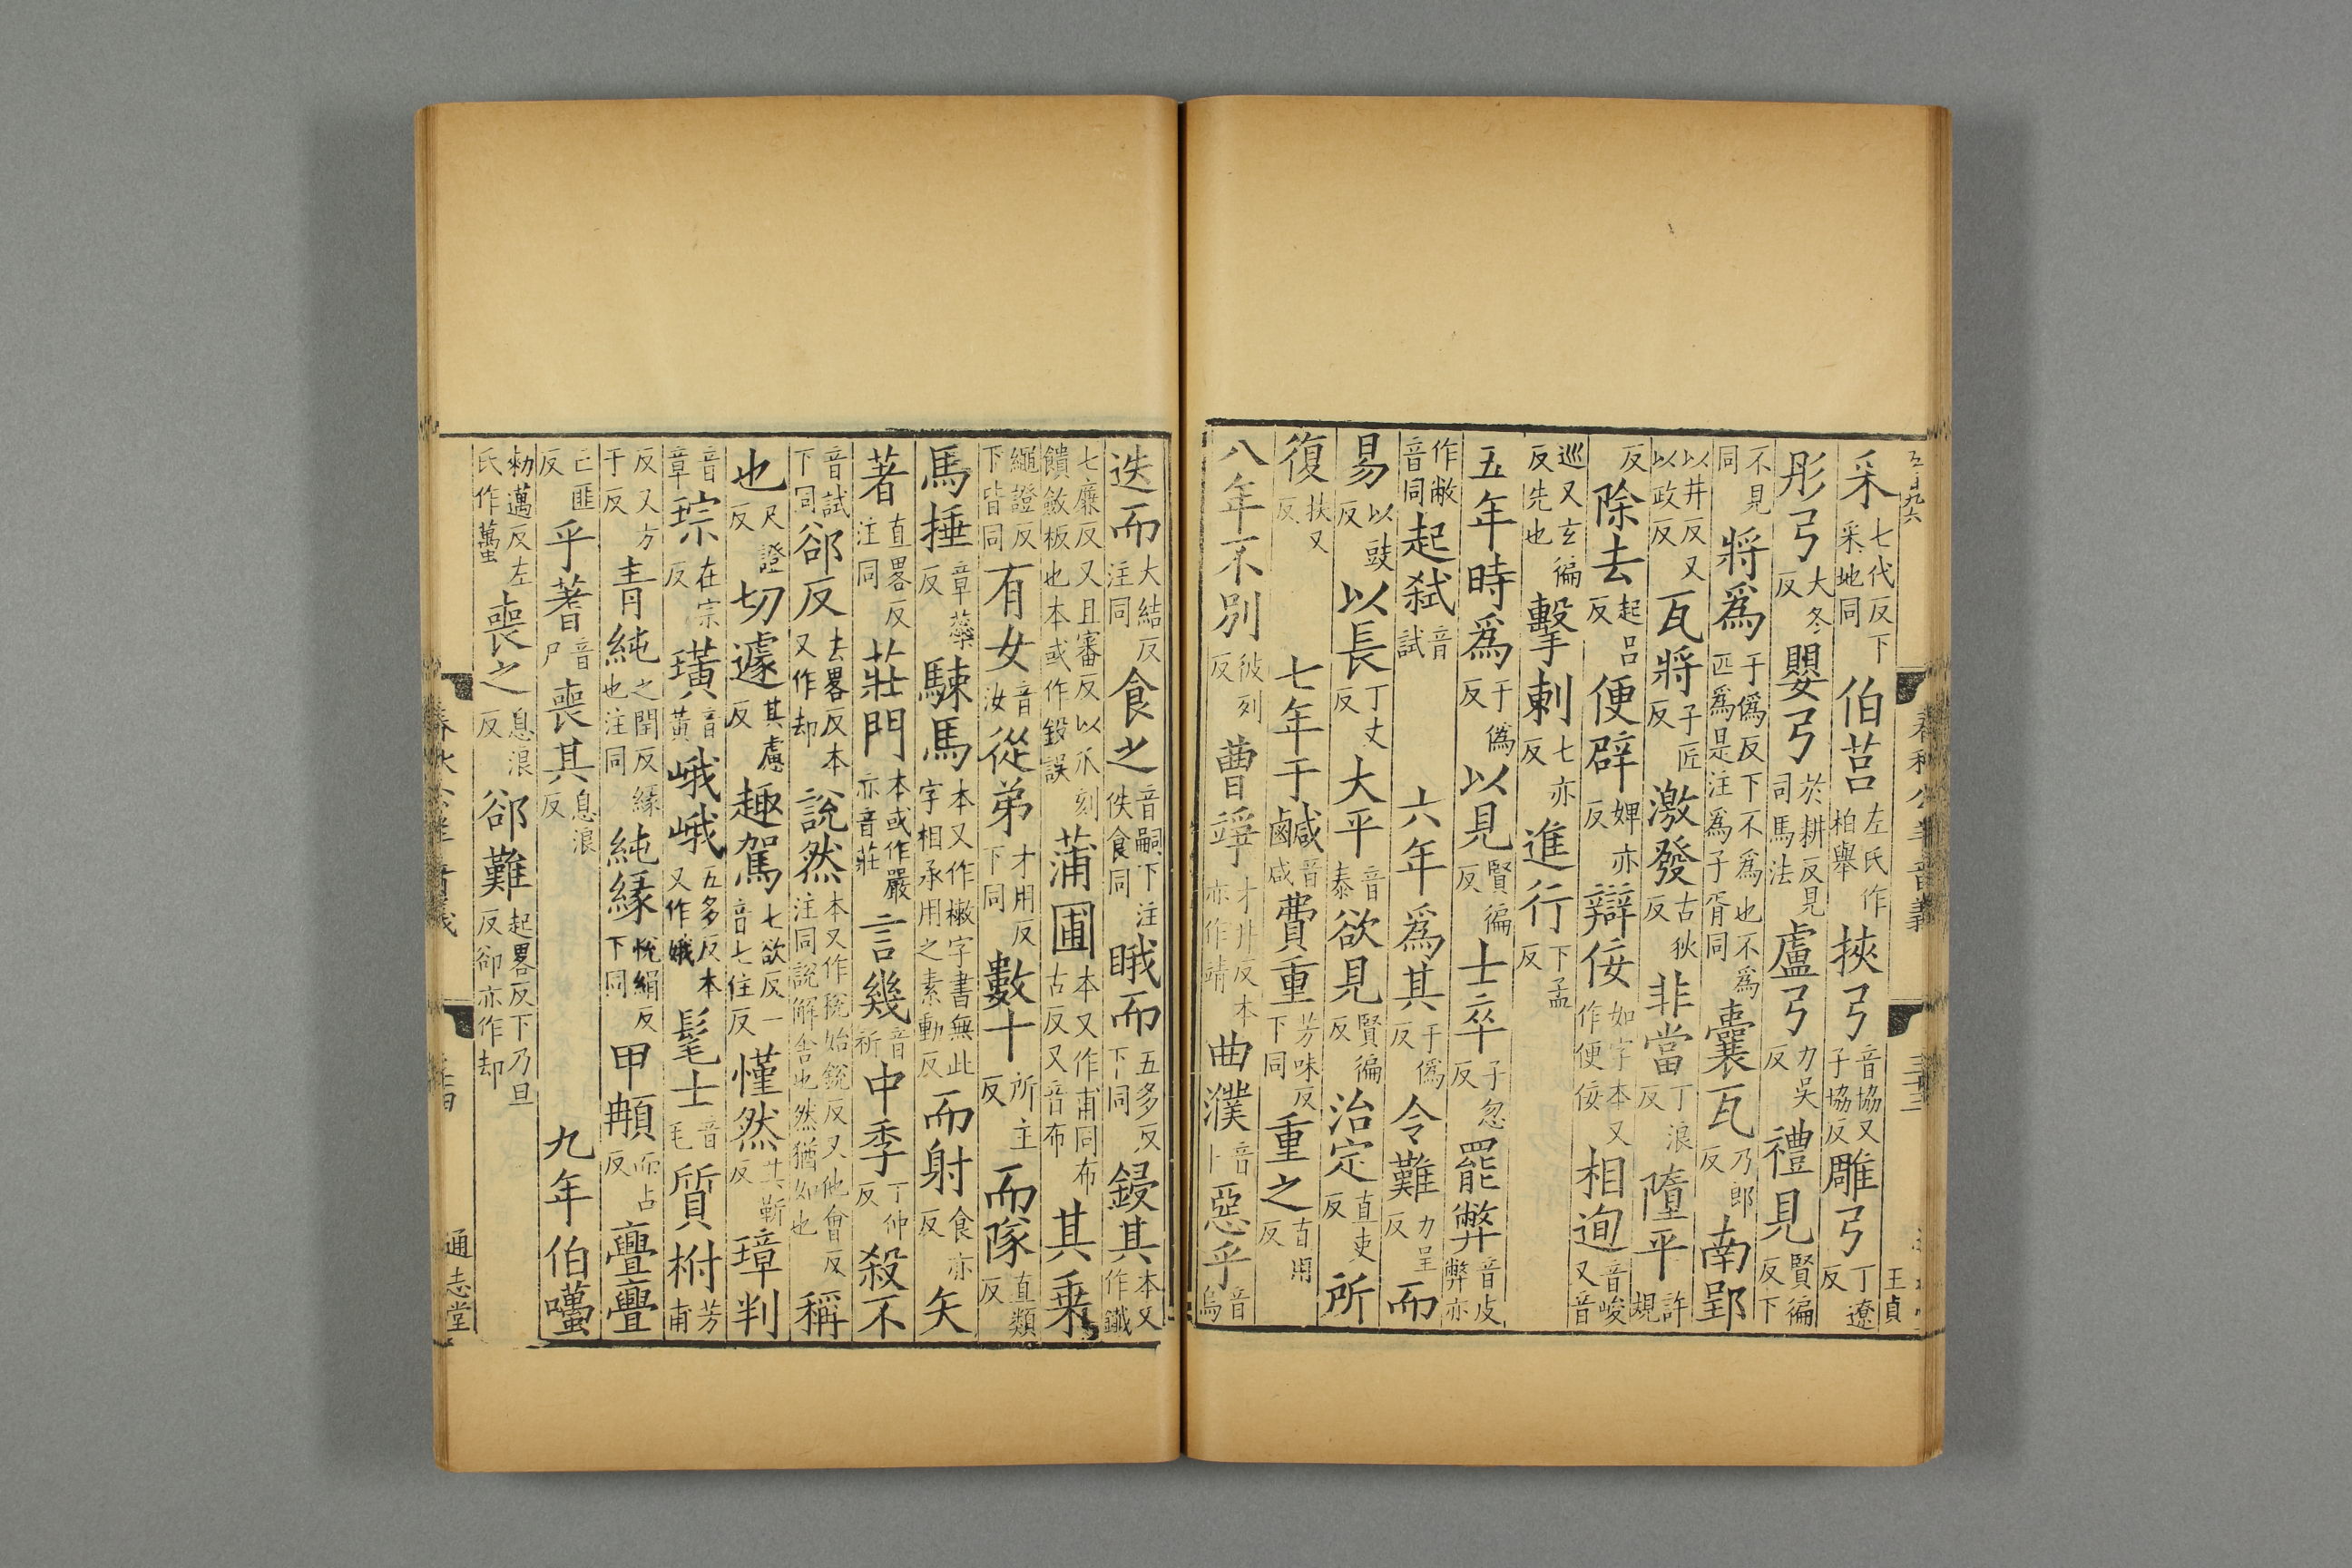 采七代反下采地同伯莒左氏作柏舉挾弓音協又子協反雕弓丁遼反
彤弓大冬反嬰弓於耕反見司馬法盧弓力吳反禮見賢徧反下
不見同將爲于僞反下不爲也不爲匹爲是注爲子胥同囊瓦乃郎反南郢
以井反又以政反瓦將子匠反激發古狄反非當丁浪反墮平許規
反除去起呂反便辟婢亦反辯佞如字本又作便佞相迿音峻又音
巡又玄徧反先也擊刺七亦反進行下孟反
五年時爲于僞反以見賢徧反士卒子忽反罷弊音皮弊亦
作敝音同起弒音試六年爲其于僞反令難力呈反而
易以豉反以長丁丈反大平音泰欲見賢徧反治定直吏反所
復扶又反七年于鹹音咸費重芳味反下同重之直用反
八年不別彼列反曹竫才井反本亦作靖曲濮音卜惡乎音烏
迭而大結反注同食之音嗣下注佚食同睋而五多反下同鋟其本又作鑯
七廉反又且審反以爪刻饋斂板也本或作鍛誤蒲圃本又作甫同布古反又音布其乗
繩證反下皆同有女音汝從弟才用反下同數十所主反而隊直類反
馬捶章蘂反駷馬本又作橄字書無此字相承用之素動反而射食亦反矢
著直畧反注同莊門本或作嚴亦音莊言幾音祈中季丁仲反殺不
音試下同郤反去畧反本又作却說然本又作稅始銳反又他會反注同說解舍也然猶如也稱
也尺證反切遽其慮反趣駕七欲反一音七住反慬然其靳反璋判
音章琮在宗反璜音黃峨峨五多反本又作娥髦士音毛質柎芳甫
反又方于反青純之閏反緣也注同純緣悅絹反下同甲䫇而占反亹亹
亡匪反乎蓍音尸喪其息浪反九年伯囆
勑邁反左氏作蠆喪之息浪反郤難起畧反下乃旦反郤亦作却
通志堂
王貞